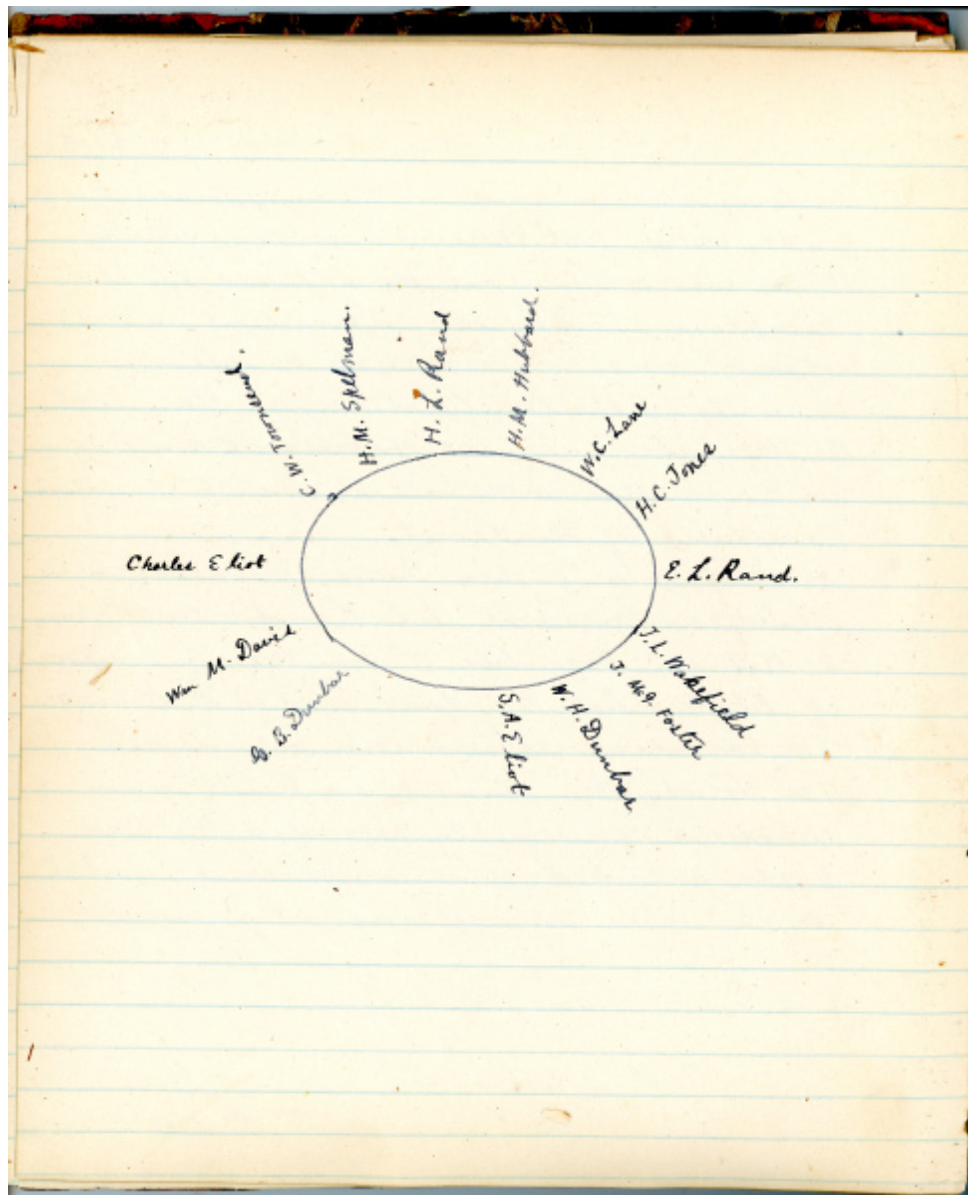 C. W. Townsend.
H. M. Spelman.
H. L. Rand
H. M. Hubbard.
W. C. Lane
H. C. Jones
E. L. Rand.
J. L. Wakefield
J. McG. Foster
W. H. Dunbar
S. A. Eliot
B. Dunbar
Wm M. Davis
Charles Eliot